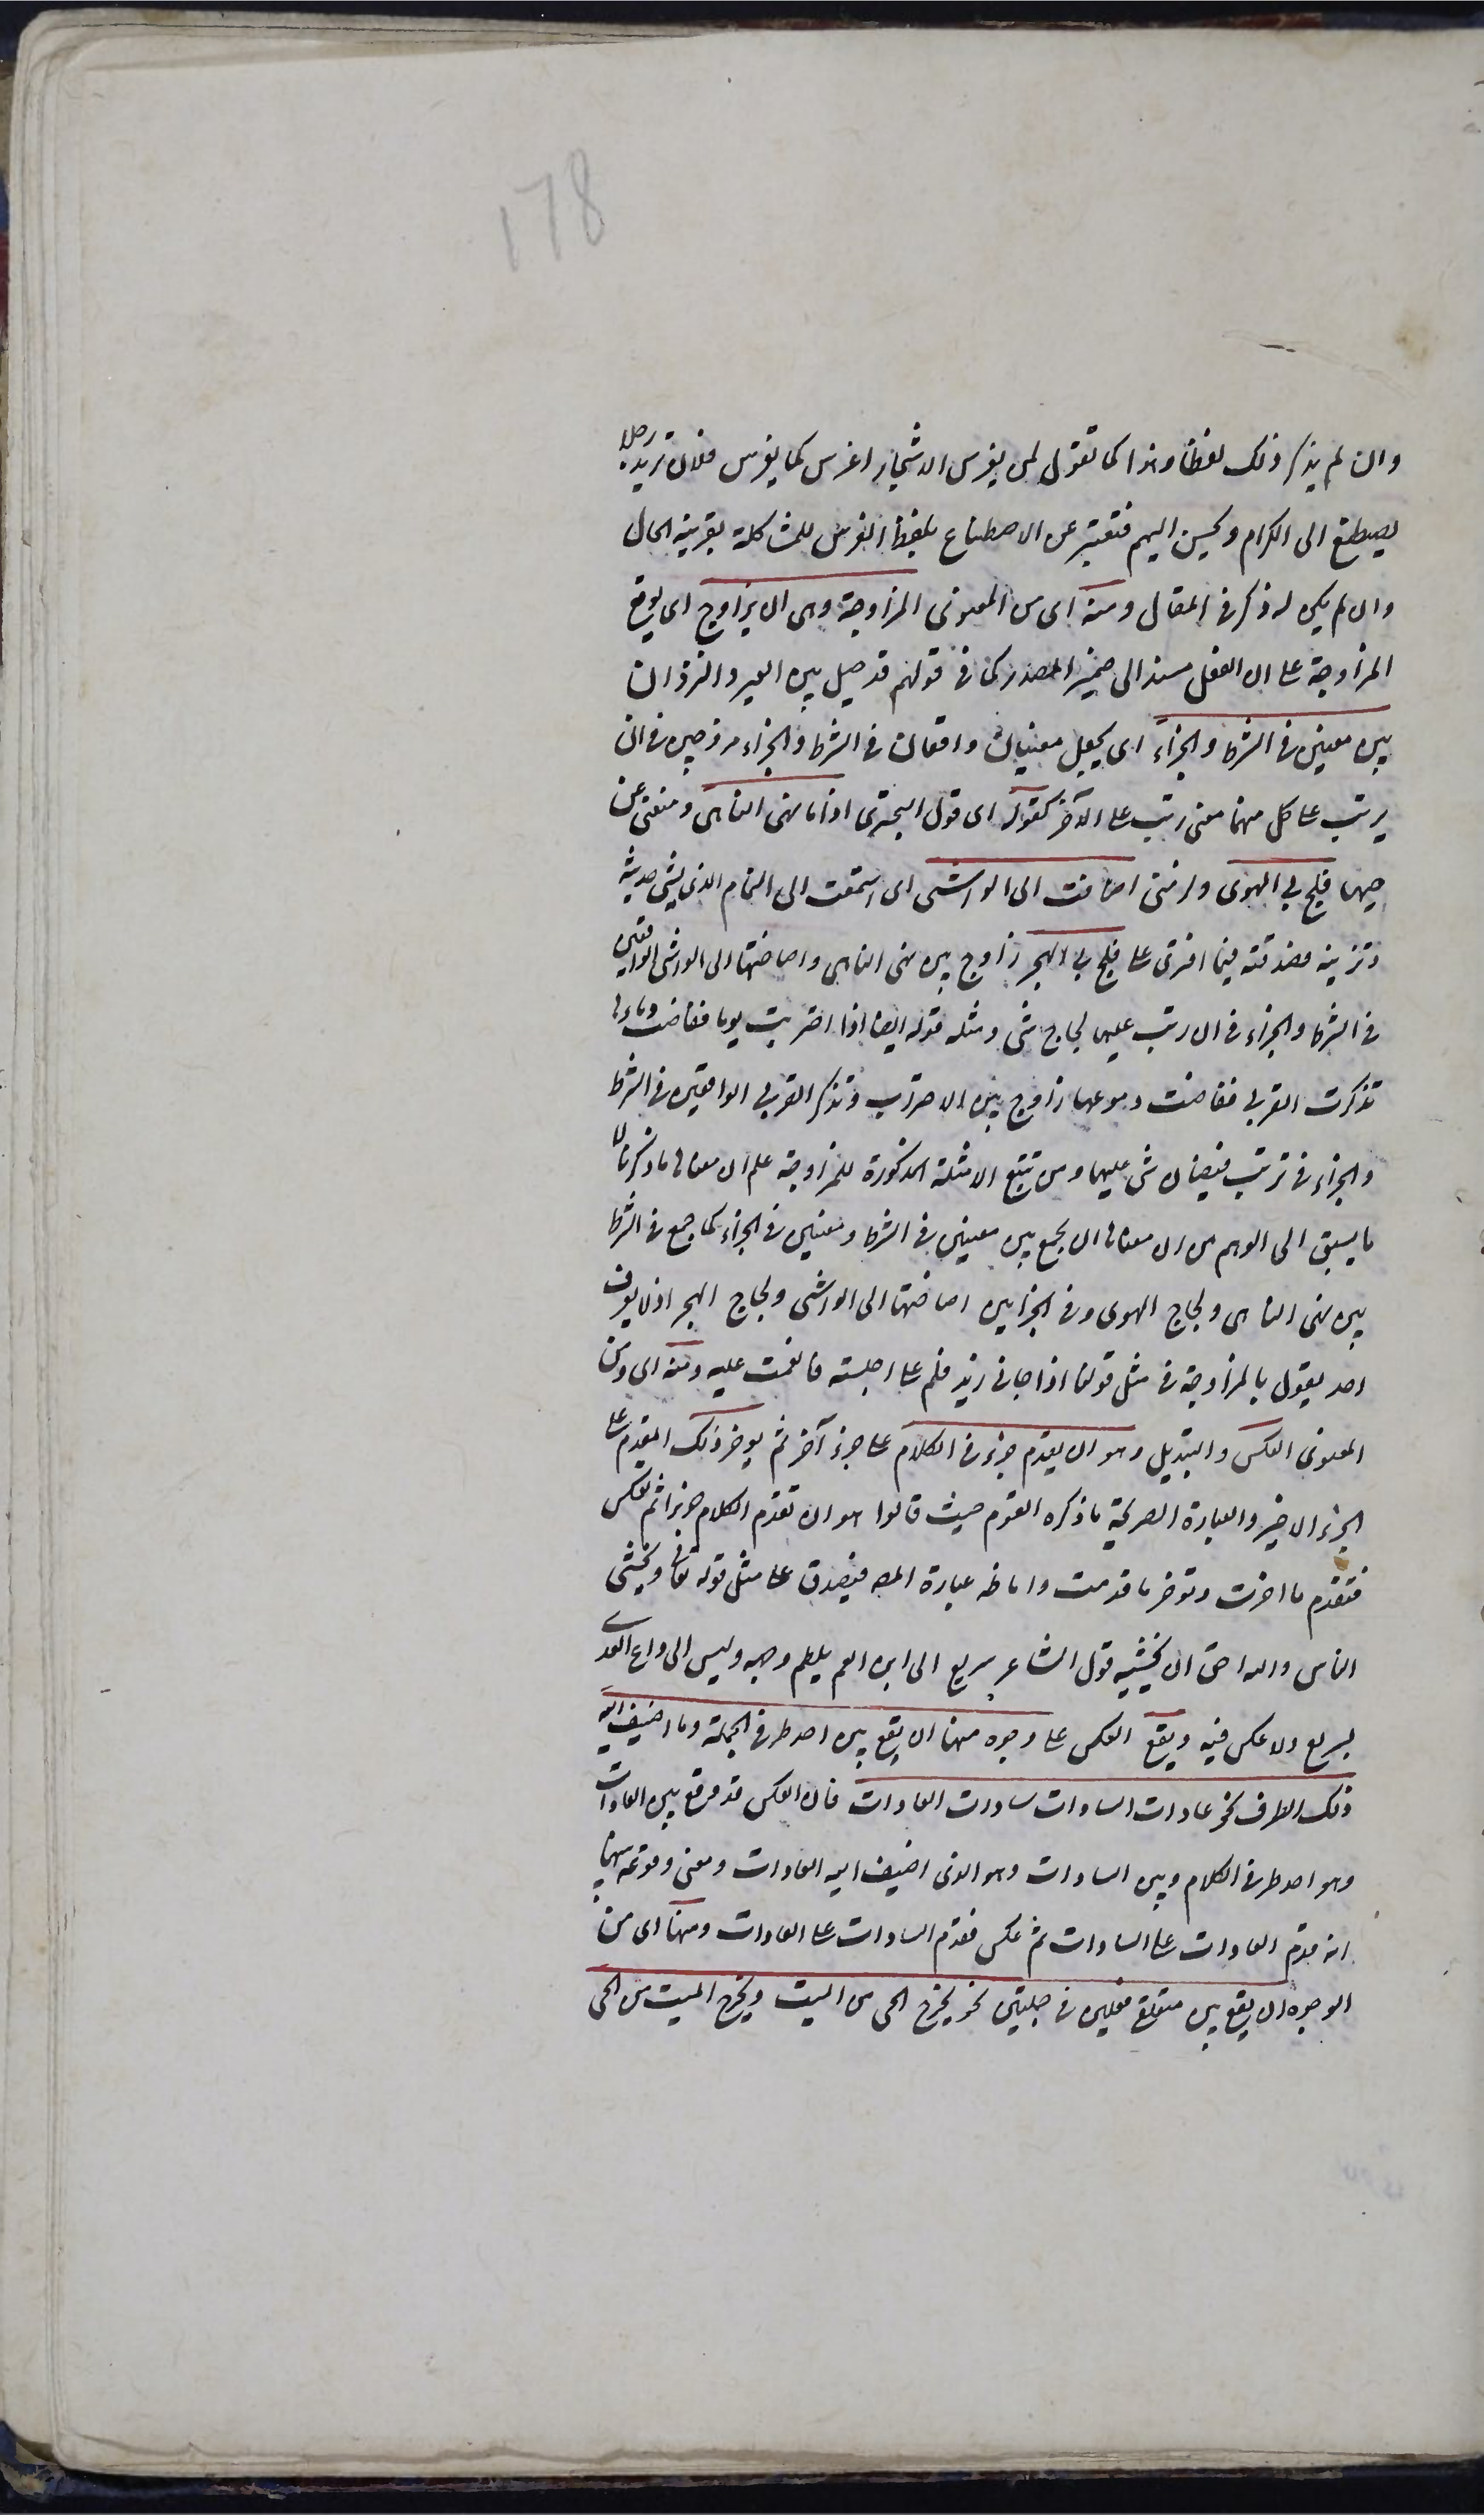 178
وان لم يذكر ذلك لفظا وهذا كما تقول لمن يغرس الاشجار اغرس كما يغرس فلان تريد به رجلا
يصطنع الى الكرام ويحسن اليهم فتعبر عن الاصطناع بلفظ الغرس للمشاكلة بقرينة الحال
وان لم يكن له ذكر فى المقال ومنه اى من المعنوى المزاوجة وهى ان يزاوج اى يوقع
المزاوجة على ان الفعل مسند الى ضمير المصدر كما فى قولهم قد حيل بين العير والنزوان
بين معنيين فى الشرط والجزاء اى يجعل معنيان واقعان فى الشرط والجزاء مزدوجين فى ان
يرتب على كل منهما معنى رتب على الآخر كقوله اى قول البحترى اذا ما نهى الناهى ومنعنى عن
حبها فلج بى الهوى ولزمنى اصاخت الى الواشى اى استمعت الى النمام الذى يشى حديثه
وتزينه فصدقته فيما افترى على فلج بى الهجر زاوج بين نهى الناهى واصاختها الى الواشى الواقعين
فى الشرط والجزاء فى ان رتب عليهما لجاج شى ومثله قوله ايضا اذا احتربت يوما ففاضت دماؤها
تذكرت القربى ففاضت دموعها زاوج بين الاحتراب وتذكر القربى الواقعين فى الشرط
والجزاء فى ترتب فيضان شى عليهما ومن تتبع الامثلة المذكورة للمزاوجة علم ان معناها ما ذكرنا لا
ما يسبق الى الوهم من ان معناها ان يجمع بين معنيين فى الشرط ومعنيين فى الجزاء كما جمع فى الشرط
بين نهى الناهى ولجاج الهوى وفى الجزا بين اصاختها الى الواشى ولجاج الهجر اذ لا يعرف
احد يقول بالمزاوجة فى مثل قولنا اذا جانى زيد فسلم على اجلسته فانعمت عليه ومنه اى ومن
المعنوى العكس والتبديل وهو ان يقدم جزء فى الكلام على جزء آخر ثم يوخر ذلك المقدم على
الجزء الاخير والعبارة الصريحة ما ذكره القوم حيث قالوا هو ان تقدم الكلام جزءا ثم تعكس
فتقدم ما اخرت وتوخر ما قدمت واما ظه عبارة المصه فيصدق على مثل قوله تعالى وتخشى
الناس والله احق ان تخشيه قول الشاعر سريع الى ابن العم يلطم وجهه وليس الى داعى الندى
بسريع ولا عكس فيه ويقع العكس على وجوه منها ان يقع بين احد طرفى الجملة وما اضيف اليه
ذلك الطرف نحو عادات السادات سادات العادات فان العكس قد وقع بين العادات
وهو احد طرفى الكلام وبين السادات وهو الذى اضيف اليه العادات ومعنى وقوعه بينهما
انه قدم العادات على السادات ثم عكس فقدم السادات على العادات ومنها اى من
الوجوه ان يقع بين متعلق فعلين فى جملتين نحو يخرج الحى من الميت ويخرج الميت من الحى